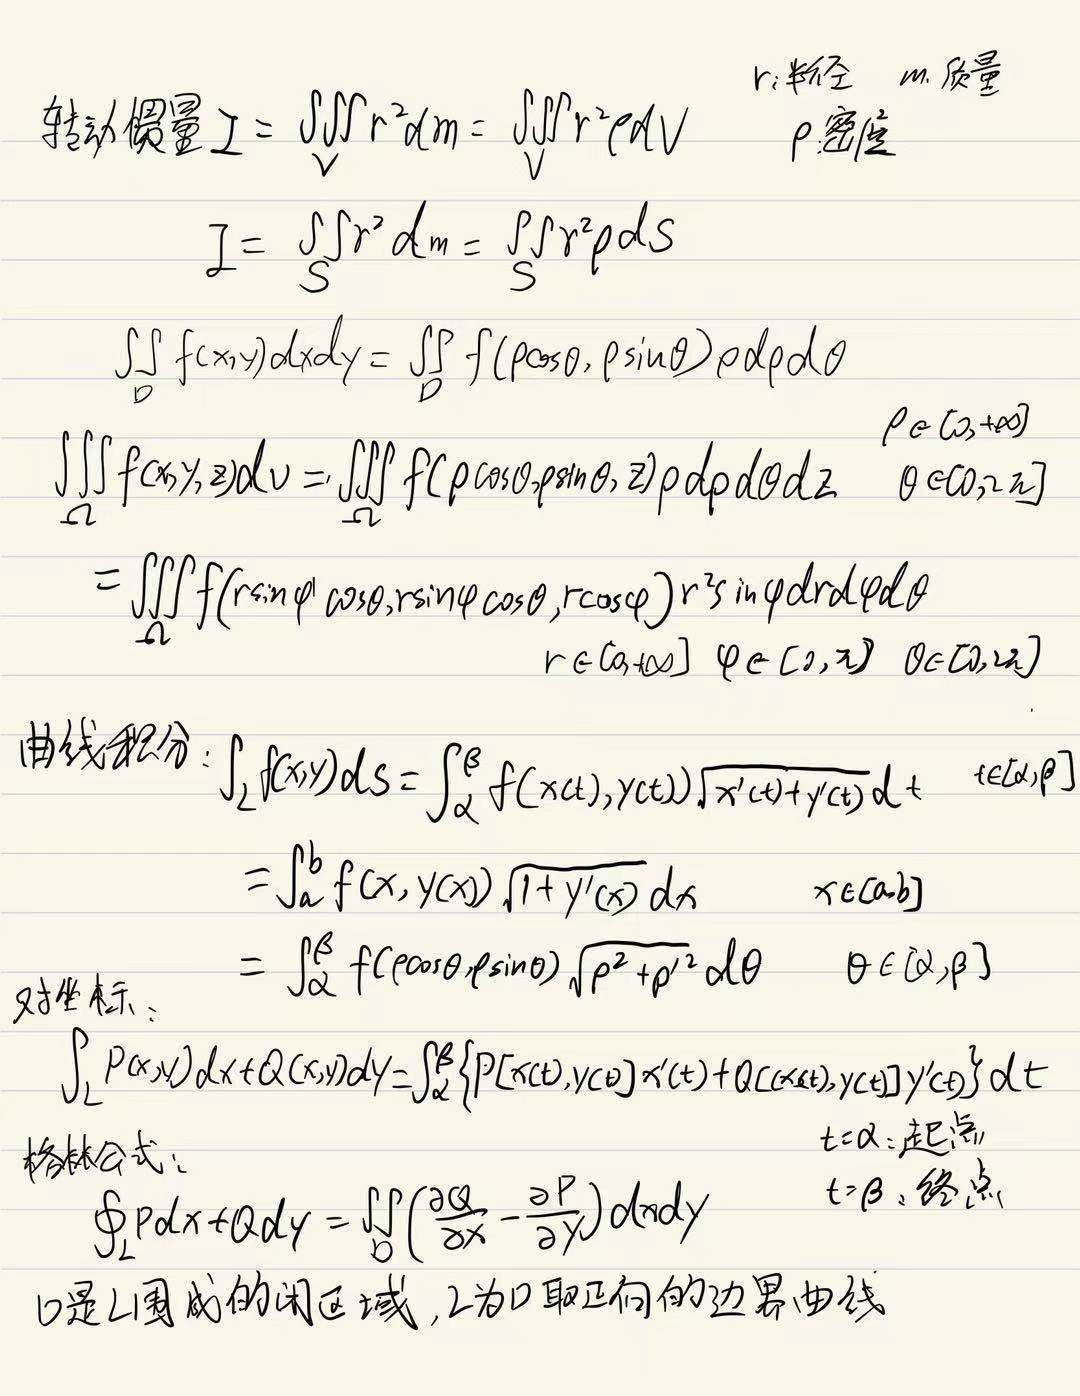 r:半径 m.质量
转动惯量 I = ∭_V r²dm = ∭_V r²ρdV ρ:密度
I = ∬_S r²dm = ∬_S r²ρds
∬_D f(x,y)dxdy = ∬_D f(ρcosθ, ρsinθ)ρdρdθ
ρ∈[0,+∞]
∭_Ω f(x,y,z)dv = ∭_Ω f(ρcosθ,ρsinθ,z)ρdρdθdz θ∈[0,2π]
= ∭_Ω f(rsinφcosθ,rsinφcosθ,rcosφ)r²sinφdrdφdθ
r∈[0,+∞] φ∈[0,π] θ∈[0,2π]
曲线积分: ∫_L f(x,y)ds = ∫_α^β f(x(t),y(t))√(x'(t)+y'(t)) dt t∈[α,β]
= ∫_a^b f(x,y(x))√(1+y'(x)) dx x∈[a,b]
= ∫_α^β f(ρcosθ,ρsinθ)√(ρ²+ρ'²) dθ θ∈[α,β]
对坐标:
∫_L P(x,y)dx+Q(x,y)dy = ∫_α^β {P[x(t),y(t)]x'(t)+Q[(x(t),y(t)]y'(t)}dt
t=α:起点
格林公式:
t=β:终点
∮_L Pdx+Qdy = ∬_D (∂Q/∂x - ∂P/∂y)dxdy
D是L围成的闭区域,L为D取正向的边界曲线